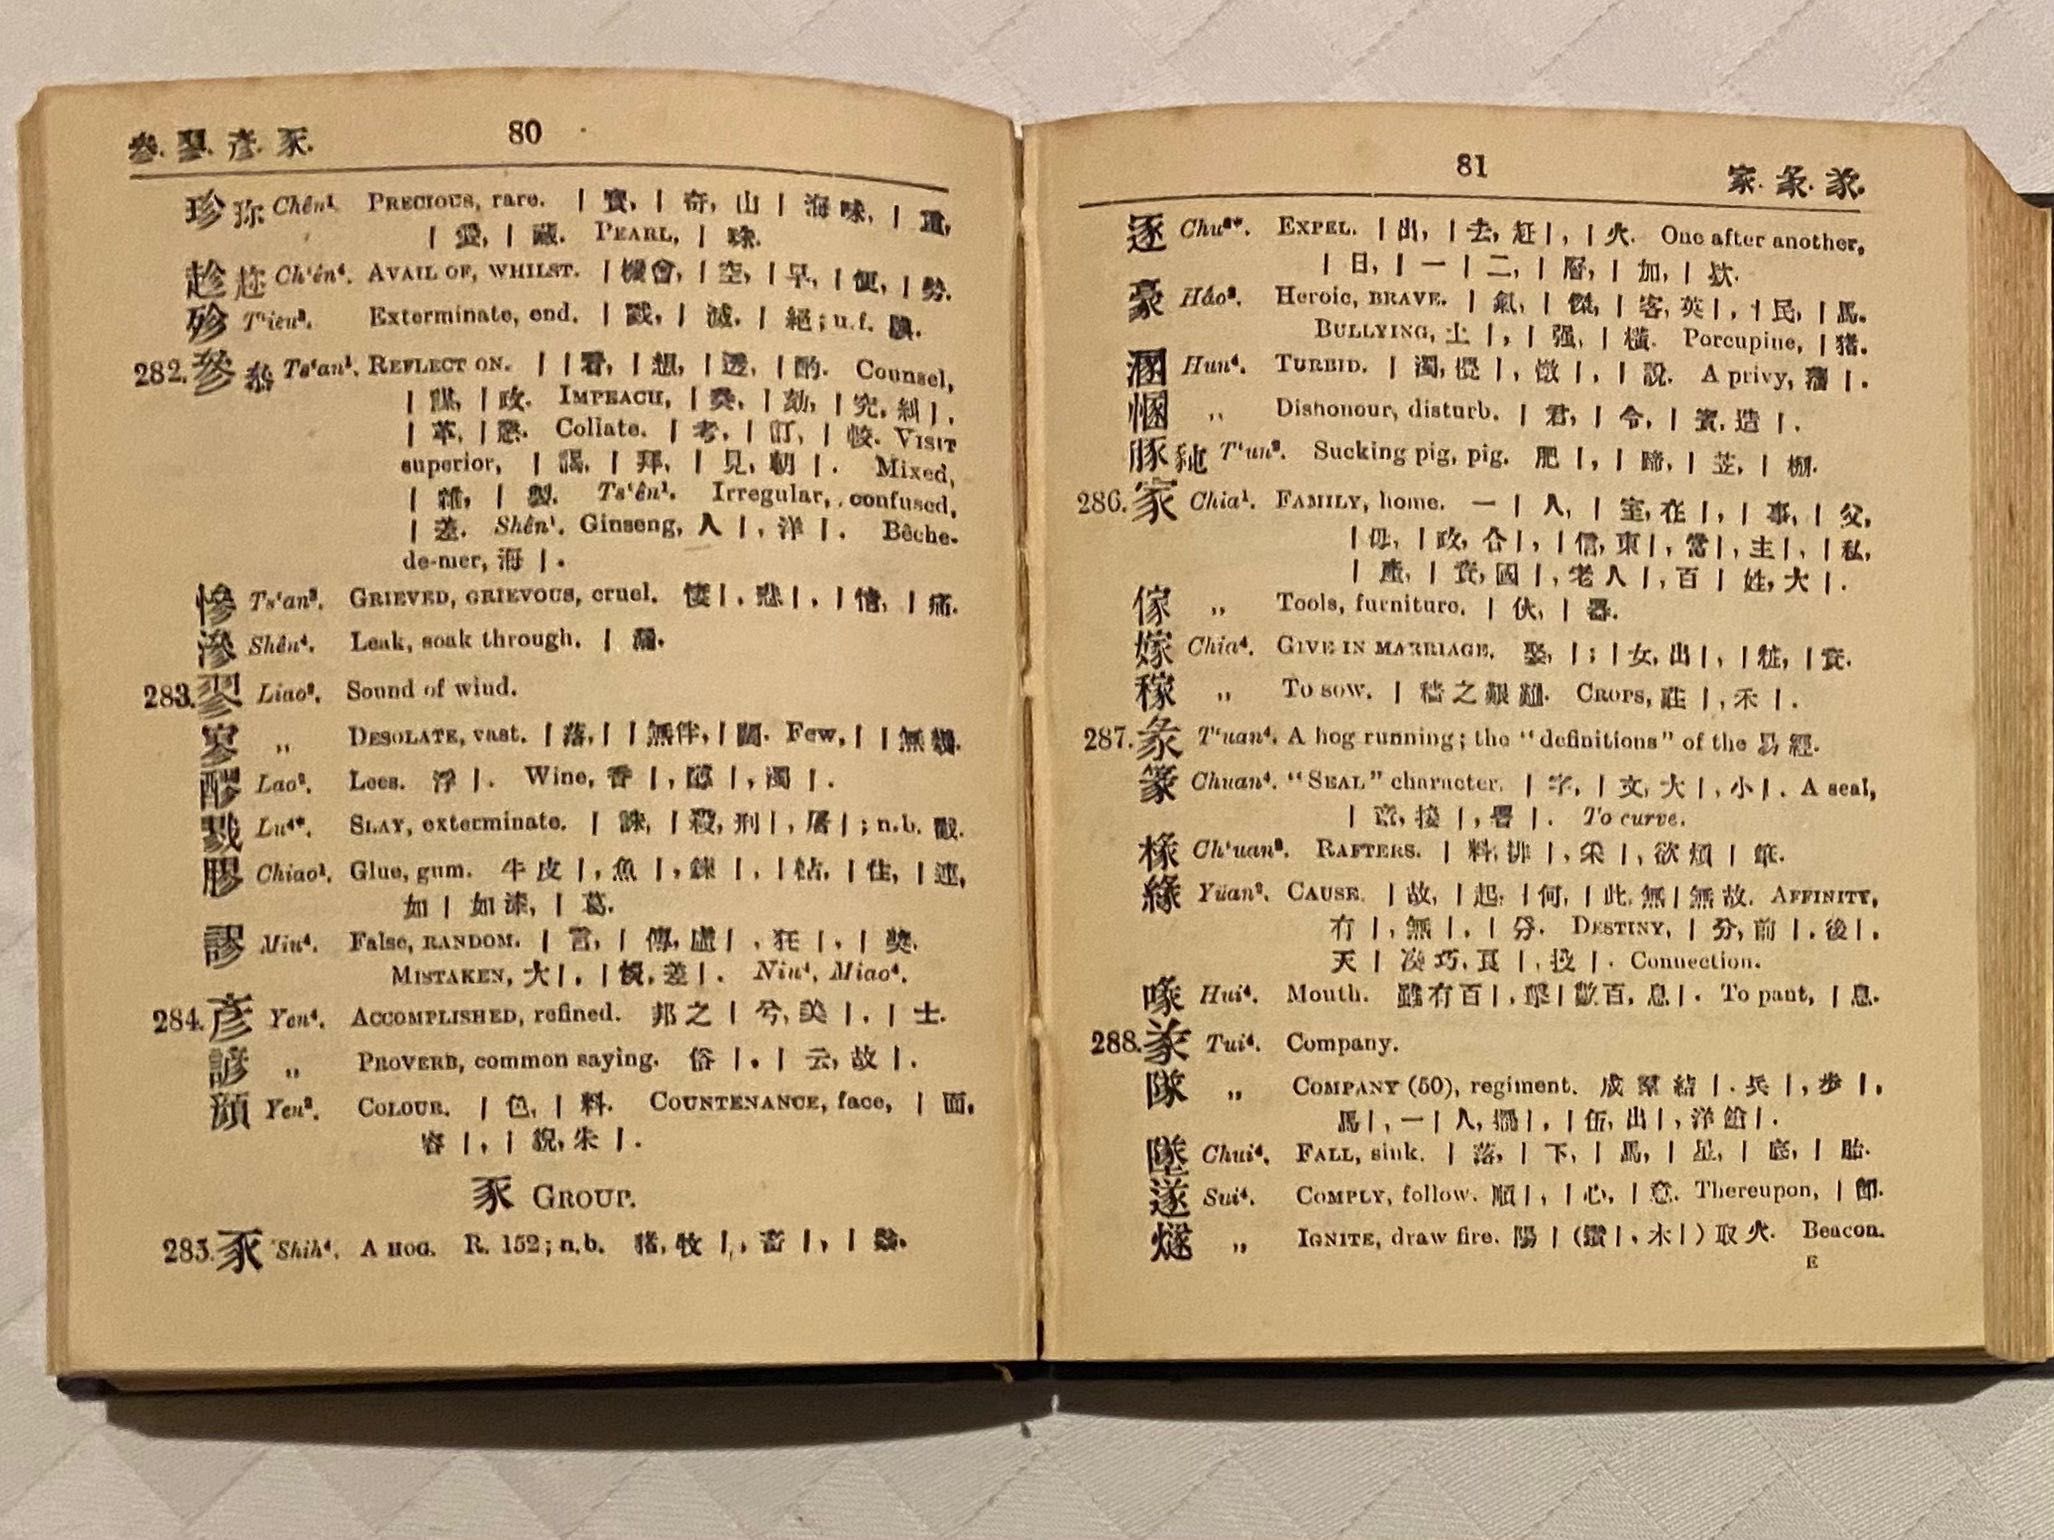 參. 翏. 彥. 豕. 80
珍 珎 Chên¹. PRECIOUS, rare. | 寶, | 奇, 山 | 海味, | 重,
| 愛, | 藏. PEARL, | 珠.
趁 趂 Ch‘ên⁴. AVAIL OF, WHILST. | 機會, | 空, | 早, | 便, | 勢.
殄 T‘ien³. Exterminate, end. | 戮, | 滅, | 絕; u.f.
282. 參 叅 Ts‘an¹. REFLECT ON. | | 看, | 想, | 透, | 酌. Counsel,
| 謀, | 政. IMPEACH, | 奏, | 劾, | 究, 糾 | .
| 革, | 懲. Collate. | 考, | 訂, | 校. VISIT
superior, | 謁, | 拜, | 見, 朝 | . Mixed,
| 雜, | 製. Ts‘ên¹. Irregular, confused,
| 差. Shên¹. Ginseng, 人 | , 洋 | . Bêche-
de-mer, 海 | .
慘 Ts‘an³. GRIEVED, GRIEVOUS, cruel. 悽 | , 悲 | , | 情, | 痛.
滲 Shên⁴. Leak, soak through. | 漏.
283. 翏 Liao². Sound of wind.
寥 „ DESOLATE, vast. | 落, | | 無伴, | 闊. Few, | | 無幾.
醪 Lao². Lees. 浮 | . Wine, 香 | , 醇 | , 濁 | .
戮 Lu⁴*. SLAY, exterminate. | 誅, | 殺, 刑 | , 屠 | ; n.b. 戳.
膠 Chiao¹. Glue, gum. 牛皮 | , 魚 | , 鰾 | , | 粘, | 住, | 連,
如 | 如漆, | 葛.
謬 Miu⁴. False, RANDOM. | 言, | 傳, 虛 | , 狂 | , | 獎.
MISTAKEN, 大 | , | 悞, 差 | . Niu⁴, Miao⁴.
284. 彥 Yen⁴. ACCOMPLISHED, refined. 邦之 | 兮, 美 | , | 士.
諺 „ PROVERB, common saying. 俗 | , | 云, 故 | .
顏 Yen². COLOUR. | 色, | 料. COUNTENANCE, face, | 面,
容 | , | 貌, 朱 | .
豕 GROUP.
285. 豕 Shih⁴. A HOG. R. 152; n.b. 猪, 牧 | , 畜 | , | 鬃.
81 家. 彖. 㒸.
逐 Chu²*. EXPEL. | 出, | 去, 赶 | , | 火. One after another,
| 日, | 一 | 二, | 層, | 加, | 欵.
豪 Hao². Heroic, BRAVE. | 氣, | 傑, | 客, 英 | , | 民, | 馬.
BULLYING, 土 | , | 强, | 橫. Porcupine, | 猪.
溷 Hun⁴. TURBID. | 濁, | , | , | 說. A privy, 藩 | .
慁 „ Dishonour, disturb. | 君, | 令, | 賓, 造 | .
豚 豘 T‘un². Sucking pig, pig. 肥 | , | 蹄, | 苙, | 柵.
286. 家 Chia¹. FAMILY, home. 一 | 人, | 室, 在 | , | 事, | 父,
| 母, | 政, 合 | , | 信, 東 | , 當 | , 主 | , | 私,
| 產, | 資, 國 | , 老人 | , 百 | 姓, 大 | .
傢 „ Tools, furniture. | 伙, | 器.
嫁 Chia⁴. GIVE IN MARRIAGE. 娶, | ; | 女, 出 | , | 粧, | 資.
稼 „ To sow. | 穡之艱難. CROPS, 莊 | , 禾 | .
287. 彖 T‘uan⁴. A hog running; the "definitions" of the 易經.
篆 Chuan⁴. "SEAL" character. | 字, | 文, 大 | , 小 | . A seal,
| 章, 接 | , 署 | . To curve.
椽 Ch‘uan². RAFTERS. | 料, 排 | , 采 | , 欲煩 | 筆.
緣 Yüan². CAUSE. | 故, | 起, | 何, | 此, 無 | 無故. AFFINITY,
有 | , 無 | , | 分. DESTINY, | 分, 前 | , 後 | ,
天 | 湊巧, 頁 | , 投 | . Connection.
喙 Hui⁴. Mouth. 雖有百 | , 息 | . To pant, | 息.
288. 㒸 Tui⁴. Company.
隊 „ COMPANY (50), regiment. 成羣結 | , 兵 | , 步 | ,
馬 | , 一 | 人, 擺 | , | 伍, 出 | , 洋鎗 | .
墜 Chui⁴. FALL, sink. | 落, | 下, | 馬, | 星, | 底, | 胎.
遂 Sui⁴. COMPLY, follow. 順 | , | 心, | 意. Thereupon, | 卽.
燧 „ IGNITE, draw fire. 陽 | (鑽 | , 木 | ) 取火. Beacon.
E